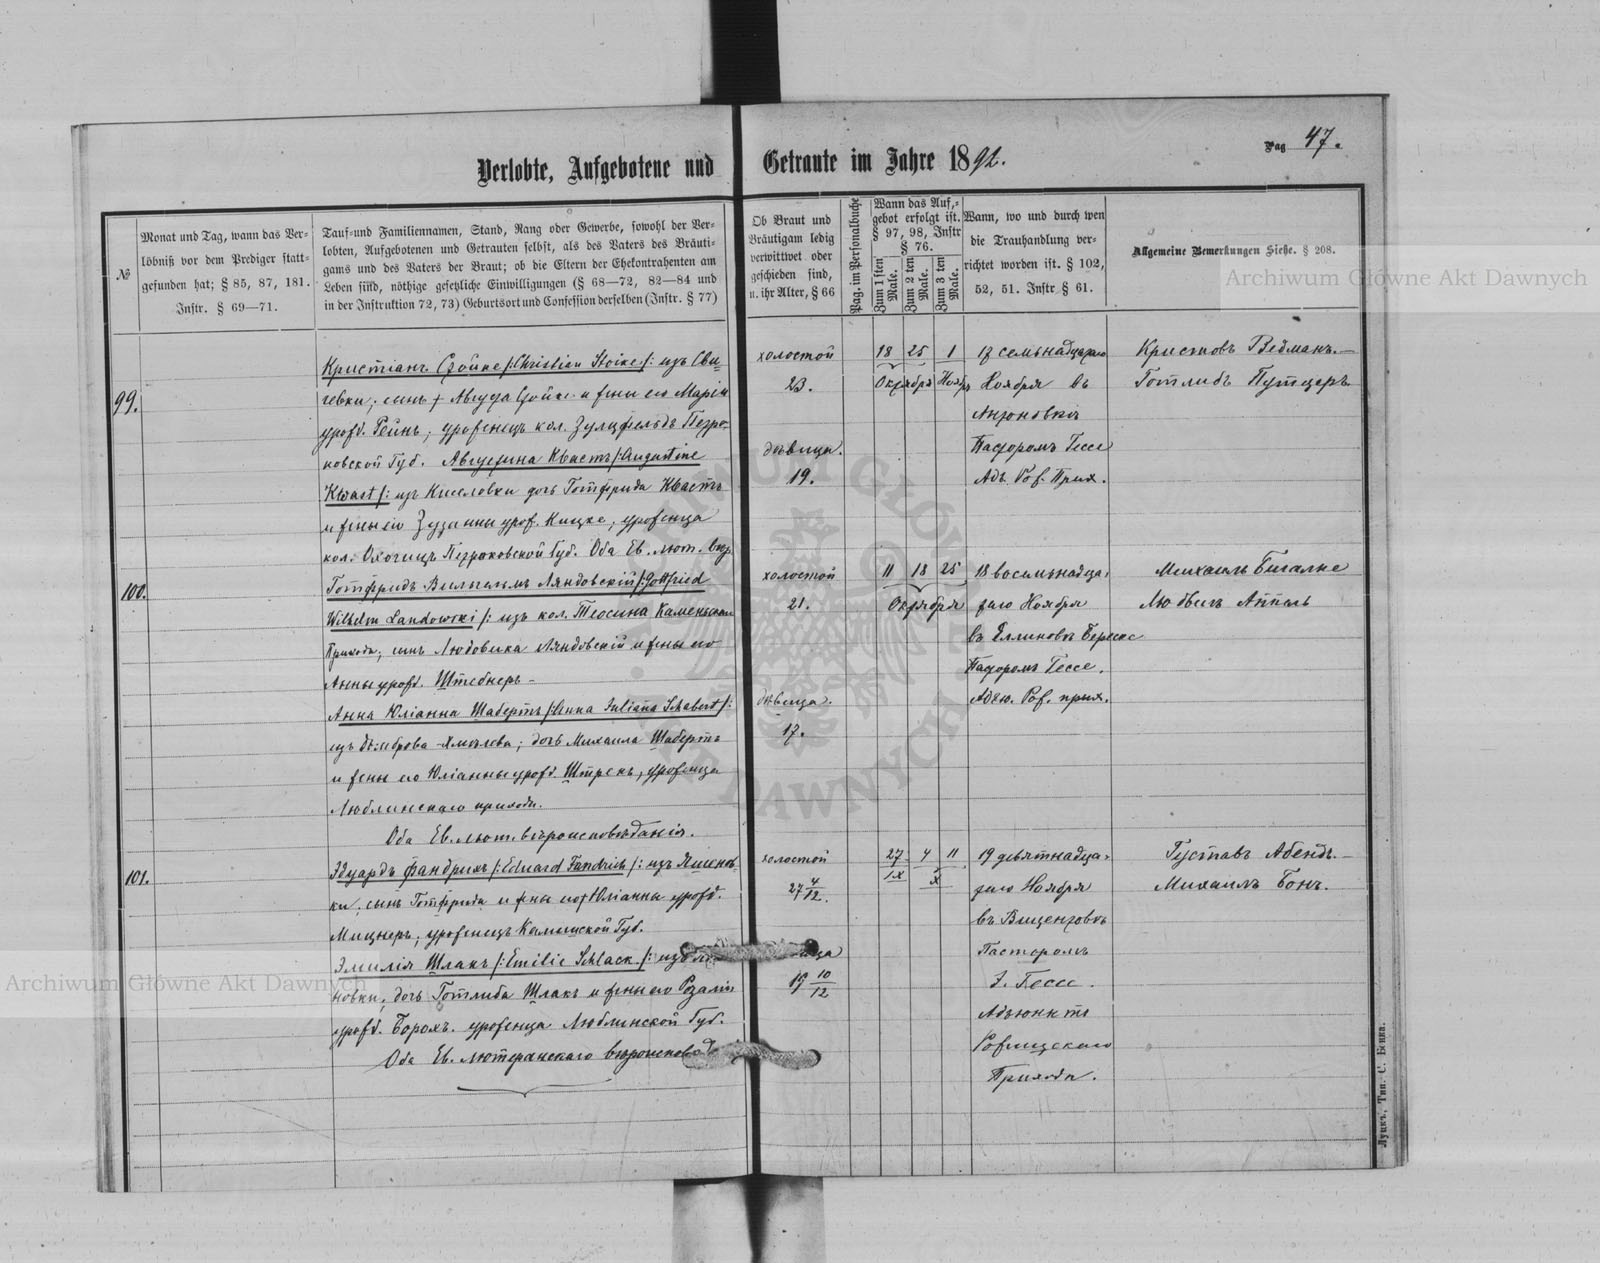 Verlobte, Aufgebotene und Getraute im Jahre 1892.
Pag 47.
№
Monat und Tag, wann das Ver-
löbniß vor dem Prediger statt-
gefunden hat; § 85, 87, 181.
Instr. § 69—71.
Tauf=und Familiennamen, Stand, Rang oder Gewerbe, sowohl der Ver-
lobten, Aufgebotenen und Getrauten selbst, als des Vaters des Bräuti-
gams und des Vaters der Braut; ob die Eltern der Ehekontrahenten am
Leben sind, nöthige gesetzliche Einwilligungen (§ 68—72, 82—84 und
in der Instruktion 72, 73) Geburtsort und Confession derselben (Instr. § 77)
Ob Braut und
Bräutigam ledig
verwittwet oder
geschieden sind,
u. ihr Alter, § 66
Pag. im Personalbuche
Wann das Auf-
gebot erfolgt ist.
§ 97, 98, Instr
§ 76.
Zum 1sten Male.
Zum 2 ten Male.
Zum 3 ten Male.
Wann, wo und durch wen
die Trauhandlung ver-
richtet worden ist. § 102,
52, 51. Instr § 61.
Allgemeine Bemerkungen Siehe. § 208.
99.
Кристіанъ Стойке /:Christian Stoike:/ изъ Сви-
чевки; сынъ + Августа Стойке и жены его Маріи
урожд. Рейнъ; уроженецъ кол. Зулцфельдъ Петро-
ковской Губ. Августина Квастъ /:Augustine
Kwast:/ изъ Киселовки дочь Готфрида Квастъ
и жены его Зузанны урож. Кицке, уроженца
кол. Петроковской Губ. Оба Ев. лют. вѣр.
холостой
23.
дѣвица.
19.
18 25 1
Октября Ноябр
17 семьнадцатаго
Ноября въ
Антоновкѣ
Пасторомъ Гессе
Адъ. Рож. Прих.
Кристовъ Видманъ.—
Готлибъ Путцеръ
100.
Готфридъ Вильгельмъ Ляндовскій /:Gottfried
Wilhelm Landowski:/ изъ кол. Теосина Каменьскаго
Прихода; сынъ Людовика Ляндовскій и жены его
Анны урожд. Штебнеръ—
Анна Юліанна Шабертъ /:Anna Juliana Schabert:/
изъ дочь Михаила Шабертъ
и жены его Юліанны урожд. Штрекъ, уроженца
Люблинскаго прихода.
Оба Ев. лют. вѣроисповѣданія.
холостой
21.
дѣвица.
17.
11 18 25
Октября
18 восемьнадца-
таго Ноября
въ Еллиновѣ Бережс
Пасторомъ Гессе.
Адъю. Рож. прих.
Михаилъ Бигальке
Людвигъ Аппель
101.
Эдуардъ Фандрихъ /:Eduard Fandrich:/ изъ Яшенов-
ки, сынъ Готфрида и жены его + Юліанны урожд.
Мицнеръ, уроженецъ Калишской Губ.
Эмилія Шлакъ /:Emilie Schlack:/ изъ
новки; дочь Готлиба Шлакъ и жены его Розаліи
урожд. Борохъ. уроженца Люблинской Губ.
Оба Ев. лютеранскаго вѣроисповѣд
холостой
27 4/12.
19 10/12
27 4 11
IX X
19 девятнадца-
таго Ноября
въ Виценговкѣ
Пасторомъ
Э. Гессе.
Адъюнктъ
Рожищскаго
Прихода.
Густавъ Абендъ.—
Михаилъ Бонъ.
Луцкъ, Тип. С. Бенка.
Archiwum Główne Akt Dawnych
Archiwum Główne Akt Dawnych